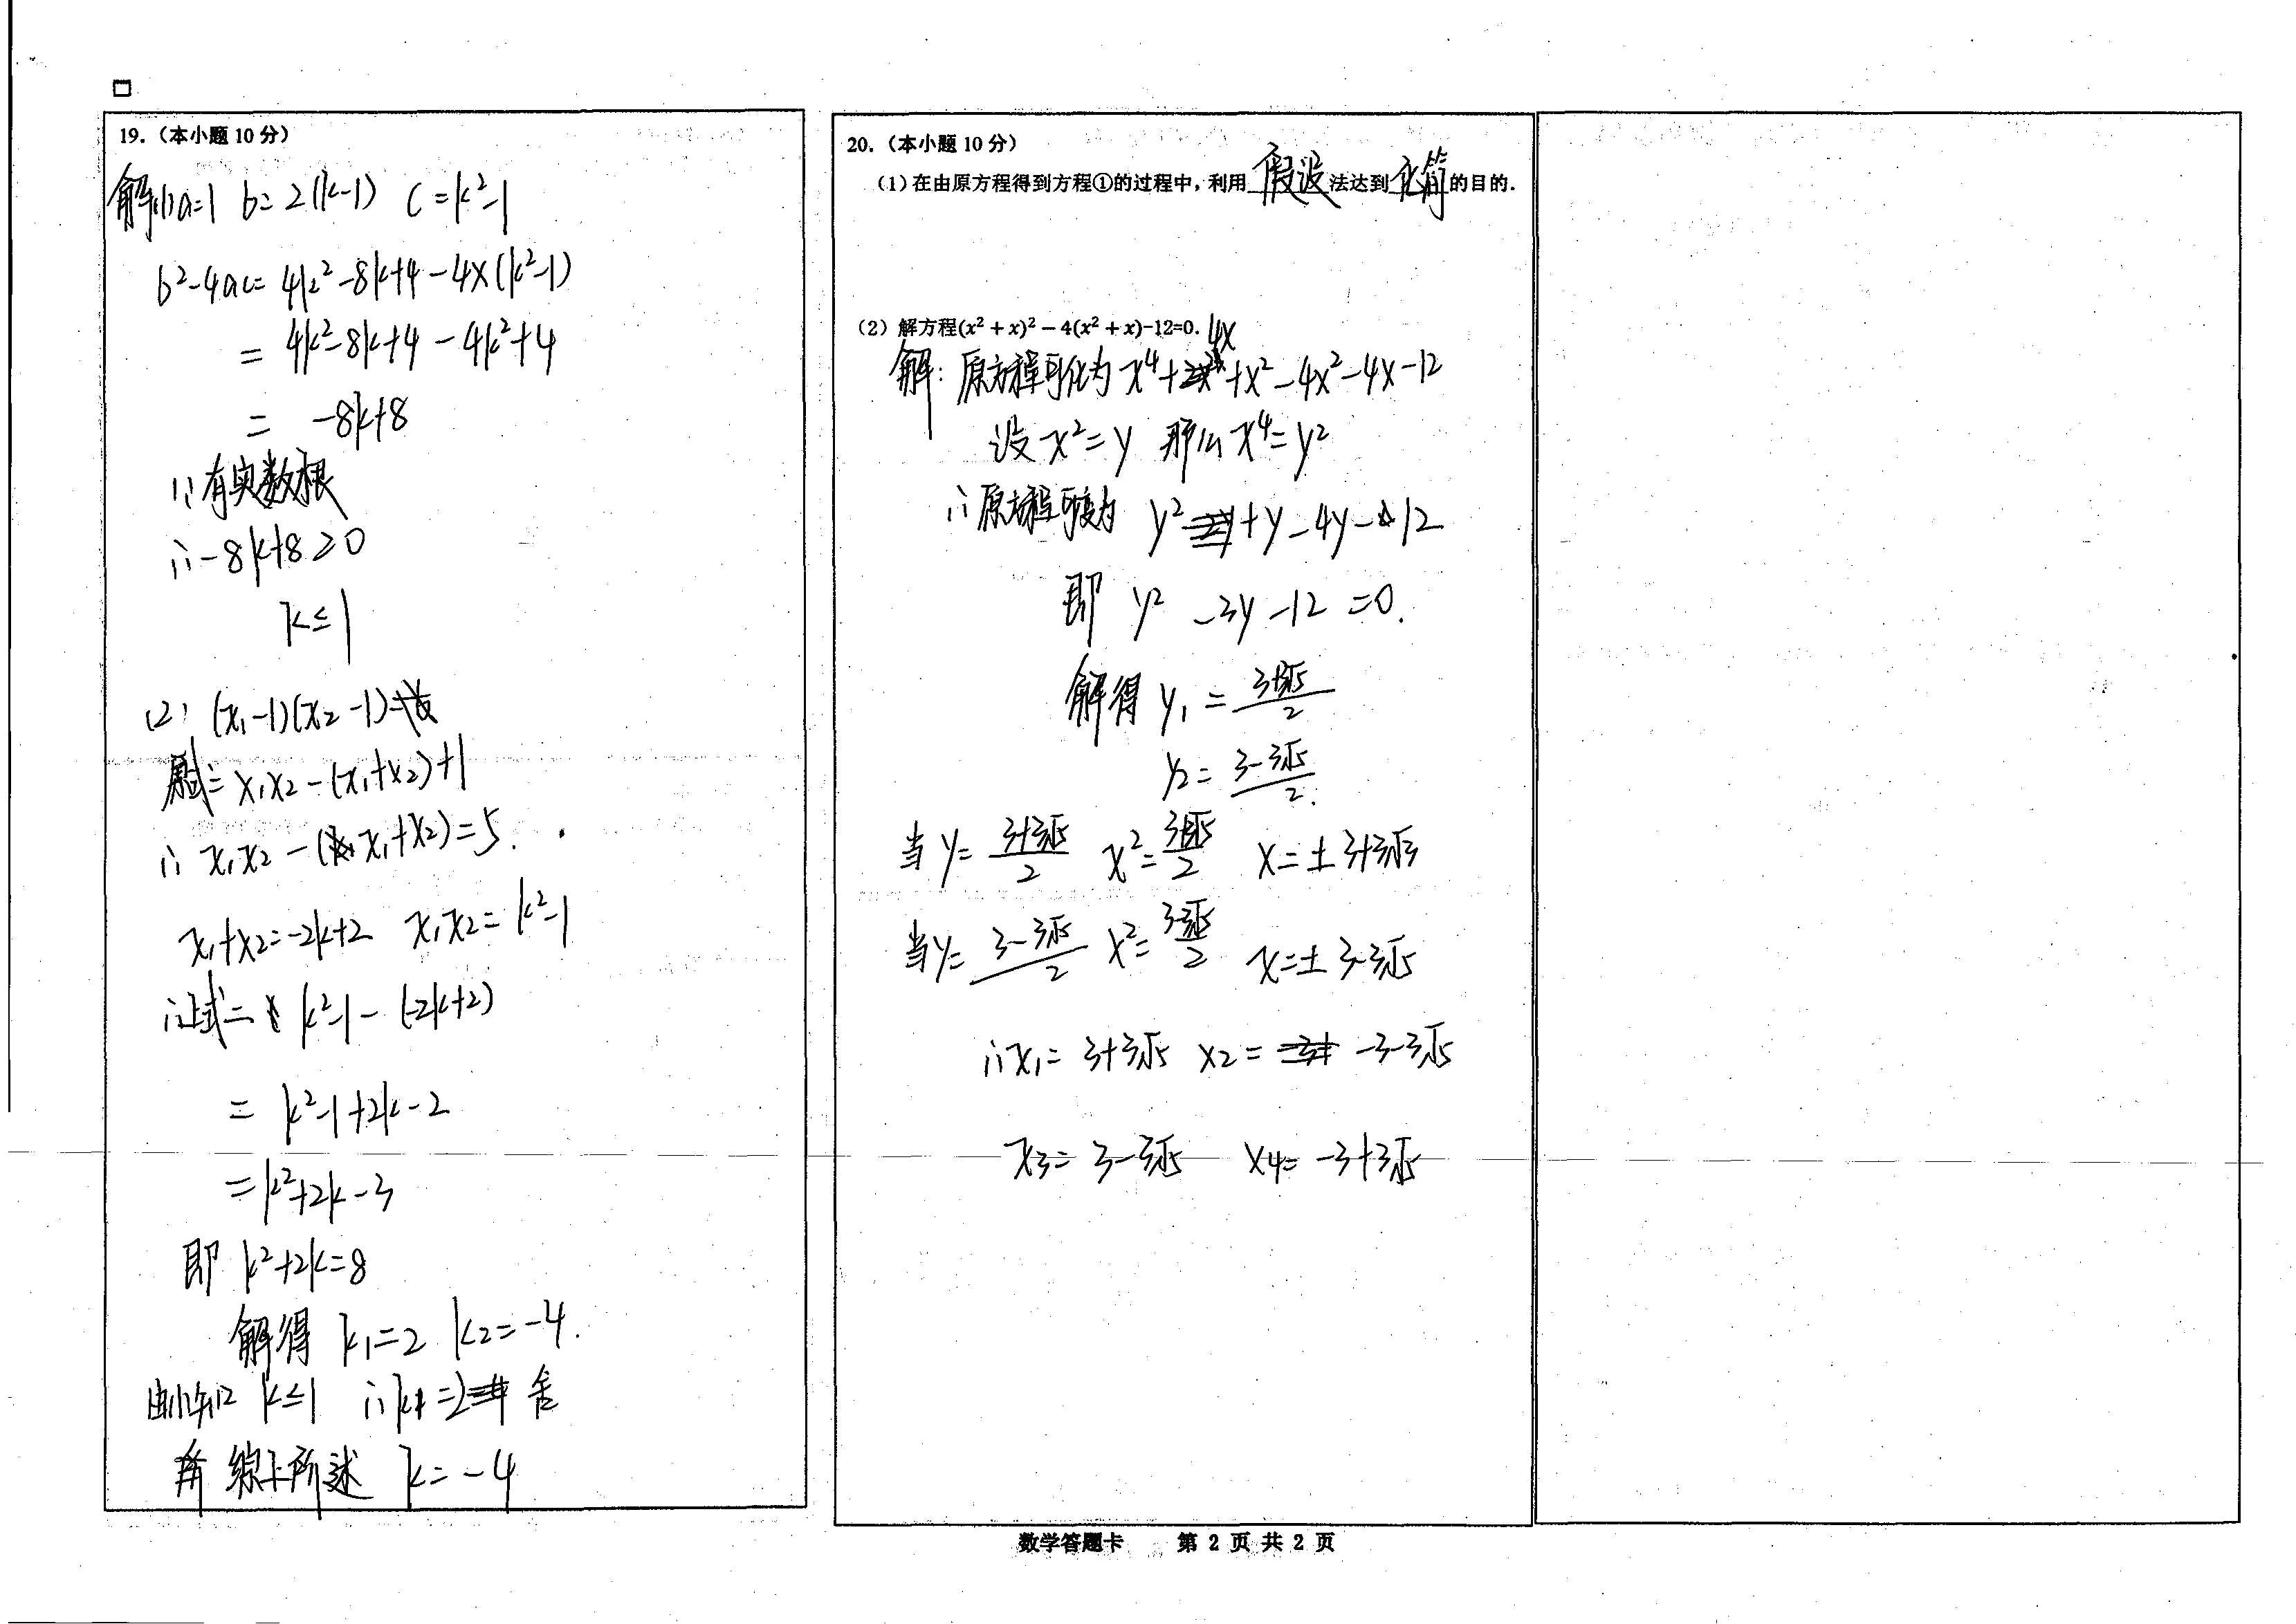 19.（本小题 10 分）
解:(1) a=1 b=2(k-1) c=k²-1
b²-4ac=4k²-8k+4-4×(k²-1)
=4k²-8k+4-4k²+4
= -8k+8
∵有实数根
∴-8k+8≥0
k≤1
(2) (x₁-1)(x₂-1)=
原式=x₁x₂-(x₁+x₂)+1
∴ x₁x₂-(x₁+x₂)=5.
x₁+x₂=-2k+2 x₁x₂=k²-1
∴上式= k²-1-(-2k+2)
= k²-1+2k-2
=k²+2k-3
即 k²+2k=8
解得 k₁=2 k₂=-4.
由(1)知 k≤1 ∴k₁=2 舍
综上所述 k=-4
20.（本小题 10 分）
（1）在由原方程得到方程①的过程中，利用 假设 法达到 化简 的目的.
（2）解方程(x² + x)² − 4(x² + x)-12=0.
4x
解: 原方程可化为 x⁴+ +x²-4x²-4x-12
设 x²=y 那么 x⁴=y²
∴原方程可变为 y² +y-4y-12
即 y² -3y-12 =0.
解得 y₁= (3+3√5)/2
y₂= (3-3√5)/2.
当 y= (3+3√5)/2 x²= (3+3√5)/2 x=± 3+3√5
当y= (3-3√5)/2 x²= (3-3√5)/2 x=± 3-3√5
∴x₁= 3+3√5 x₂= -3-3√5
x₃= 3-3√5 x₄= -3+3√5
数学答题卡 第 2 页 共 2 页